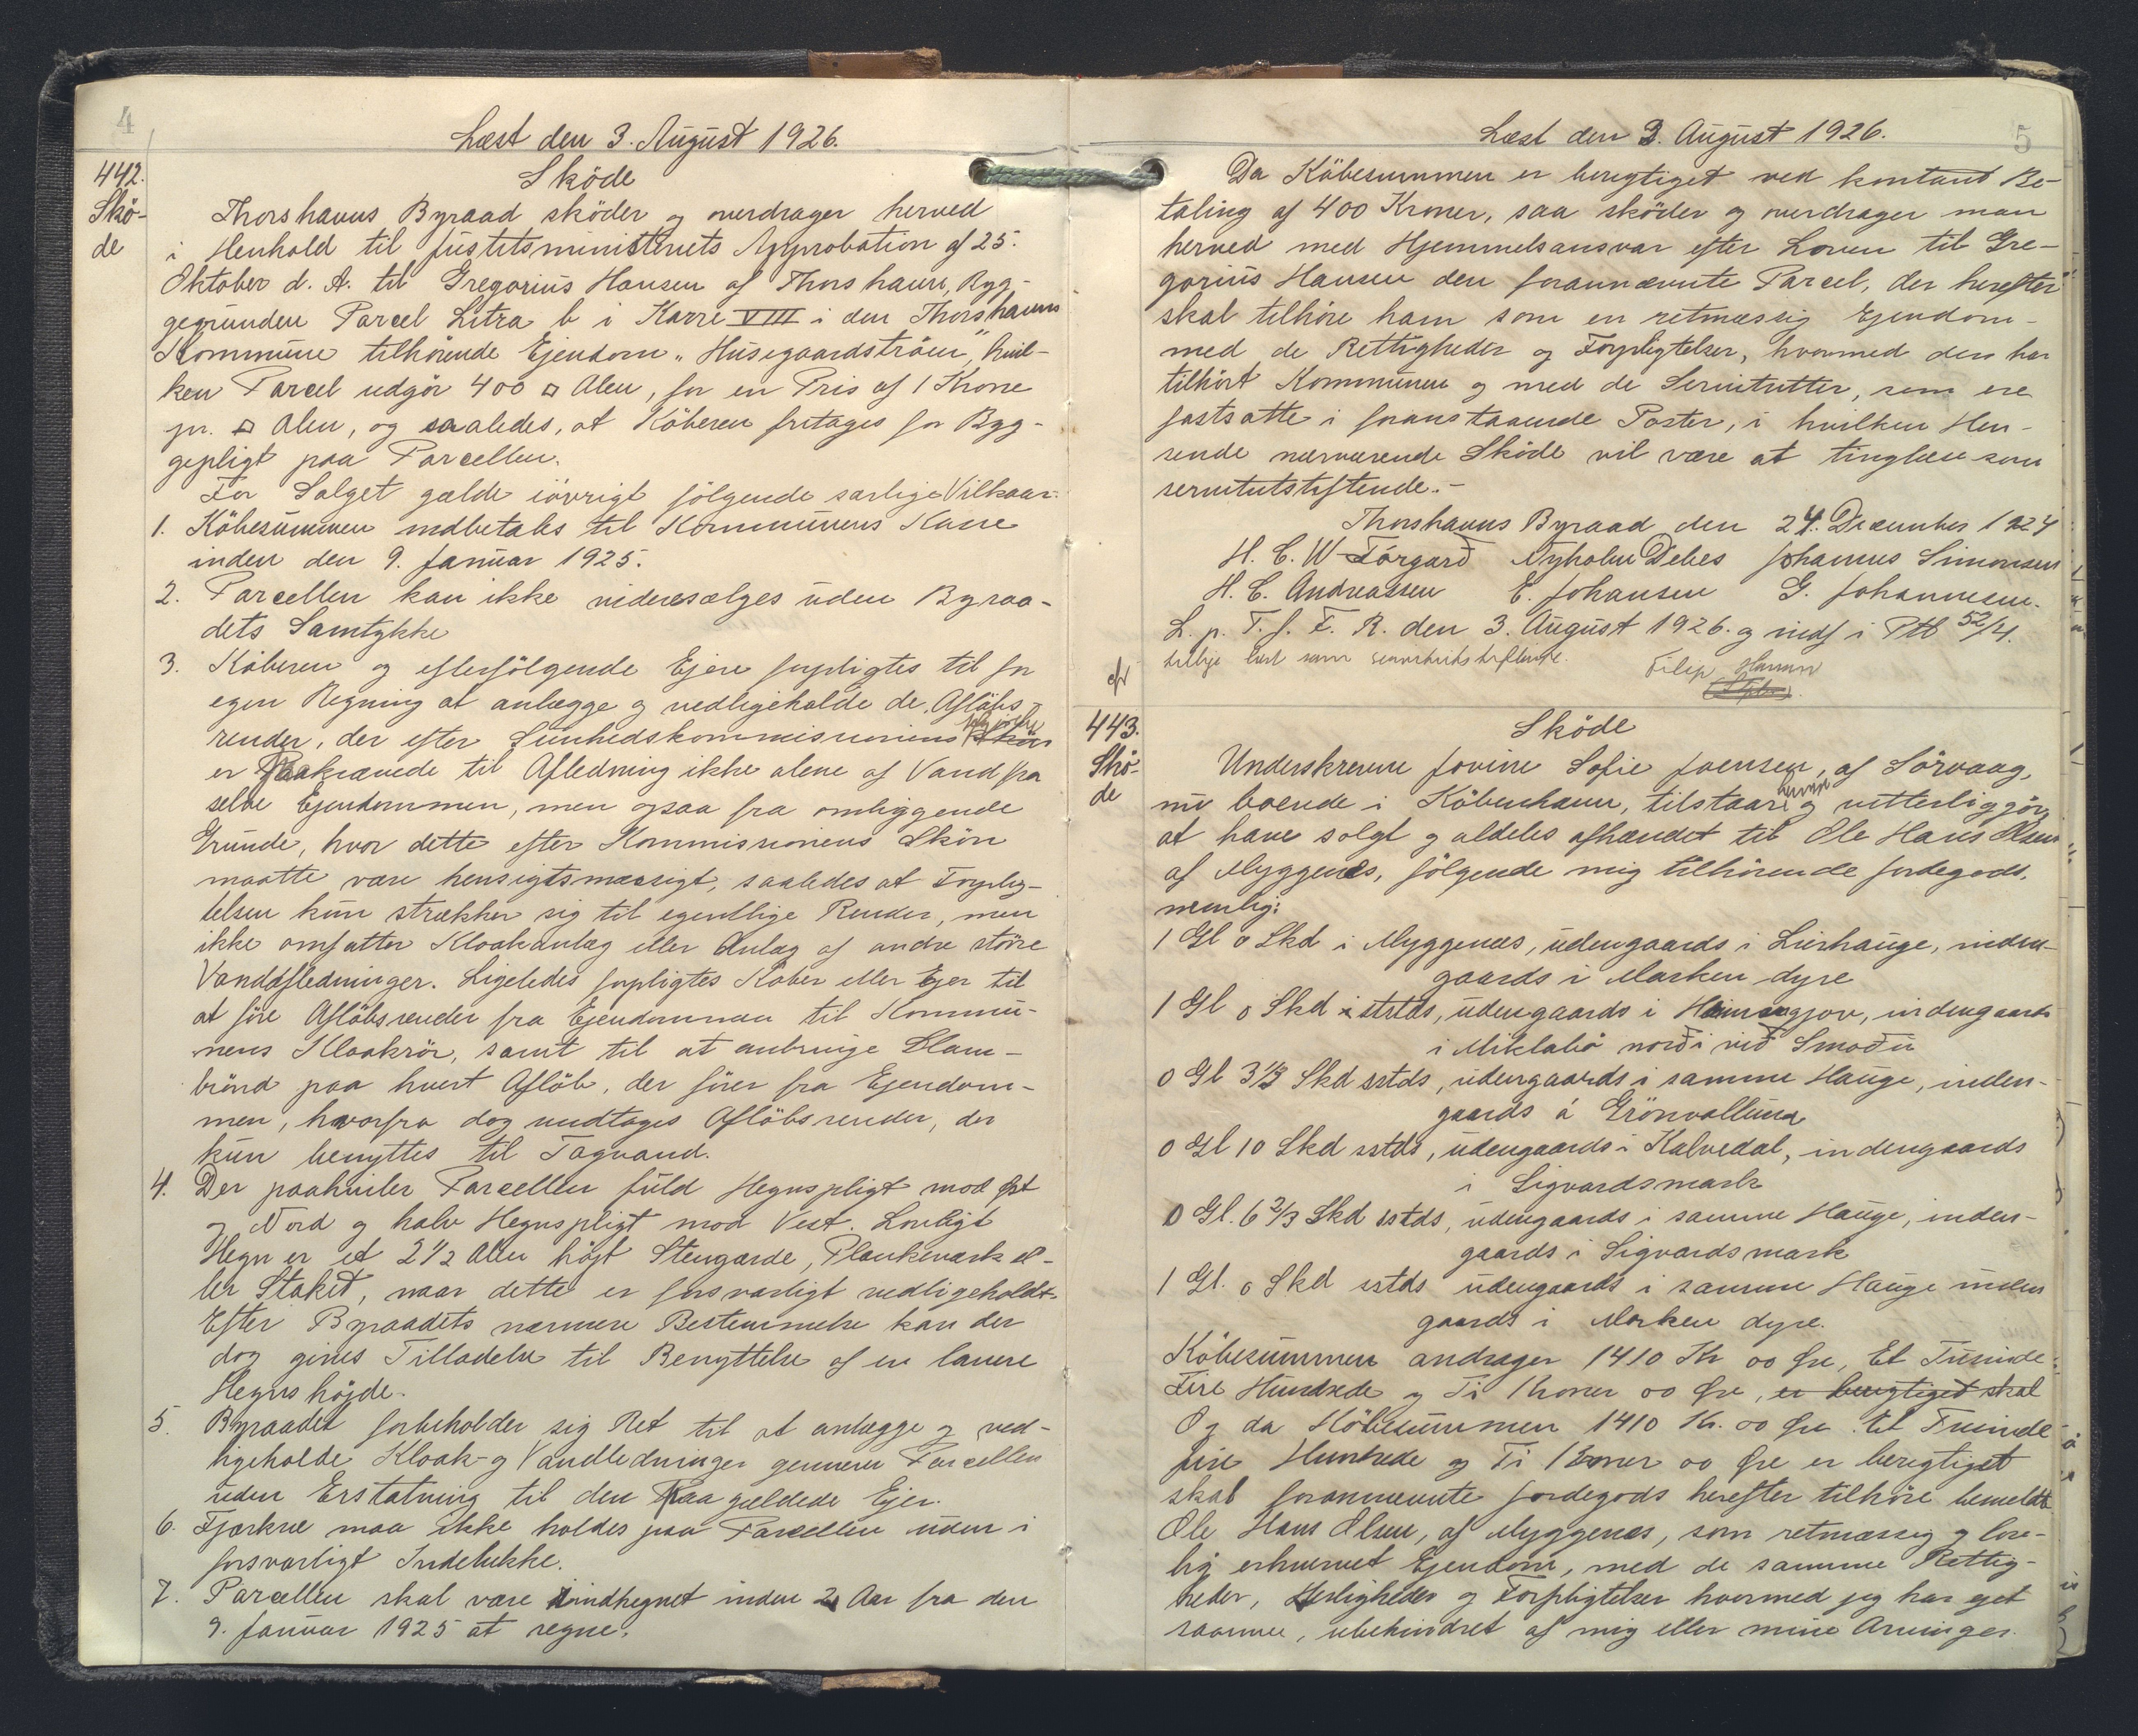 4
Læst den 3. August 1926.
442.
Skö-
de
Sköde
Thorshavns Byraad sköder og overdrager herved
i Henhold til Justitsministeriets Approbation af 25.
Oktober d. A. til Gregorius Hansen af Thorshavn, Byg-
gegrunden Parcel Litra b i Karre VIII i den Thorshavns
Kommune tilhörende Ejendom "Husegaardströen", hvil-
ken Parcel udgör 400 □ Alen, for en Pris af 1 Krone
pr. □ Alen, og saaledes, at Köberen fritages for Byg-
gepligt paa Parcellen.
For Salget gælde iövrigt fölgende særlige Vilkaar:
1. Köbesummen indbetales til Kommunens Kasse
inden den 9. Januar 1925.
2. Parcellen kan ikke videresælges uden Byraa-
dets Samtykke
3. Köberen og efterfölgende Ejere forpligtes til for
egen Regning at anlægge og vedligeholde de Aflöbs-
render, der efter Sundhedskommissionens Skön
er Paakrævede til Afledning ikke alene af Vand fra
selve Ejendommen, men ogsaa fra omliggende
Grunde, hvor dette efter Kommissionens Skön
maatte være hensigtsmæssigt, saaledes at Forplig-
telsen kun strækker sig til egentlige Render, men
ikke omfatter Kloakanlæg eller Anlæg af andre störe
Vandafledninger. Ligeledes forpligtes Köber eller Ejer til
at före Aflöbsrender fra Ejendommen til Kommu-
nens Kloakrör, samt til at anbringe Slam-
brönd paa hvert Aflöb, der förer fra Ejendom-
men, hvorfra dog undtages Aflöbsrender, der
kun benyttes til Tagvand.
4. Der paahviler Parcellen fuld Hegnspligt mod Øst
og Nord og halv Hegnspligt mod Vest. Lovligt
Hegn er et 2 1/2 Alen höjt Stengærde, Plankeværk el-
ler Stakit, naar dette er forsvarligt vedligeholdt.
Efter Byraadets nærmere Bestemmelse kan der
dog gives Tilladelse til Benyttelse af en lavere
Hegnshöjde.
5. Byraadet forbeholder sig Ret til at anlægge og ved-
ligeholde Kloak- og Vandledninger gennem Parcellen
uden Erstatning til den Paagældede Ejer.
6. Fjerkræ maa ikke holdes paa Parcellen uden i
forsvarligt Indelukke.
7. Parcellen skal være indhegnet inden 2 Aar fra den
9. Januar 1925 at regne.
Læst den 3. August 1926.
5
Da Köbesummen er berigtiget ved kontant Be-
taling af 400 Kroner, saa sköder og overdrager man
herved med Hjemmelsansvar efter Loven til Gre-
gorius Hansen den forannævnte Parcel, der herefter
skal tilhöre ham som en retmæssig Ejendom
med de Rettigheder og Forpligtelser, hvormed den har
tilhört Kommunen og med de Servitutter, som ere
fastsatte i foranstaaende Poster, i hvilken Hen-
seende nærværende Sköde vil være at tinglæse som
servitutstiftende.-
Thorshavns Byraad den 24. December 1924
H. C. W Tórgarð Nyholm Debes Johannes Simonsen
H. C. Andreassen E. Johansen G. Johannesen.
L. p. T. f. F. R. den 3. August 1926. og indf i Ptb 52/4.
tillige læst som servitutstiftende.
Filip Hansen
443.
Skö-
de
Sköde
Underskrevne Jovine Sofie Joensen, af Sörvaag,
nu boende i Köbenhavn, tilstaar herved og vitterliggör,
at have solgt og aldeles afhændet til Ole Hans Olsen
af Myggenæs, fölgende mig tilhörende Jordegods,
nemlig:
1 Gl 0 Skd i Myggenæs, udengaards i Lierhauge, inden-
gaards i Marken dyre
1 Gl 0 Skd i sstds, udengaards i Heimangjov, indengaards
i Miklabö norði við Smoðu
0 Gl 3 1/3 Skd sstds, udengaards i samme Hauge, inden-
gaards á Grönvalluna
0 Gl 10 Skd sstds, udengaards i Kalvedal, indengaards
i Sigvardsmark
0 Gl. 6 2/3 Skd sstds, udengaards i samme Hauge, inden-
gaards i Sigvardsmark
1 Gl. 0 Skd sstds udengaards i samme Hauge inden
gaards i Marken dyre.
Köbesummen andrager 1410 Kr 00 Øre, Et Tusinde
Fire Hundrede og Ti Kroner 00 Øre, er berigtiget skal
Og da Köbesummen 1410 Kr. 00 Øre Et Tusinde
fire Hundrede og Ti Kroner 00 Øre er berigtiget
skal forannævnte Jordegods herefter tilhöre bemeldte
Ole Hans Olsen, af Myggenæs, som retmæssig og lov-
lig erhvervet Ejendom, med de samme Rettig-
heder, Herligheder og Forpligtelser hvormed jeg har ejet
samme, ubehindret af mig eller mine Arvinger.